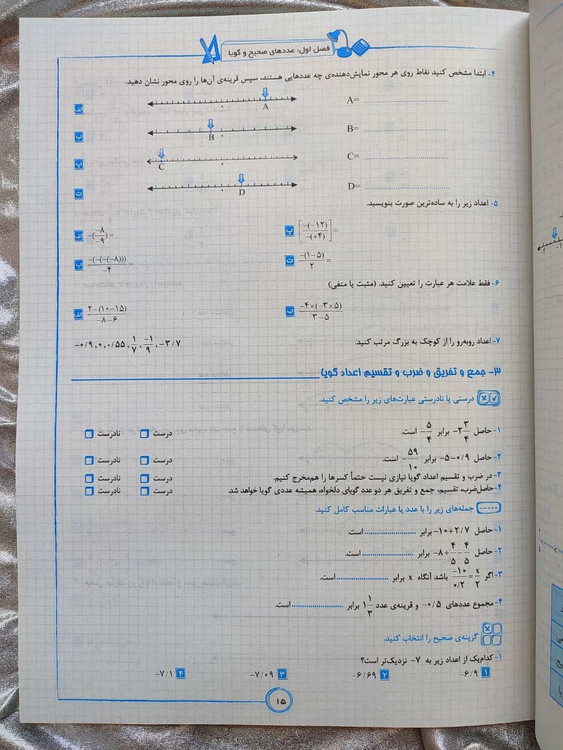 فصل اول: عددهای صحیح و گویا
۴- ابتدا مشخص کنید نقاط روی هر محور نمایش‌دهنده‌ی چه عددهایی هستند، سپس قرینه‌ی آن‌ها را روی محور نشان دهید.
الف A A= ..............
ب B B= ..............
پ C C= ..............
ت D D= ..............
۵- اعداد زیر را به ساده‌ترین صورت بنویسید.
الف -(-۸/-۹)= ب [-(-۱۲)/-(+۴)]=
پ -(-(-(-۸)))/-۴= ت -(۱-۵)/۲=
۶- فقط علامت هر عبارت را تعیین کنید. (مثبت یا منفی)
الف ۲-(۱۰-۱۵)/۸-۶ ب -۴×(-۳×۵)/۳-۵
۷- اعداد روبه‌رو را از کوچک به بزرگ مرتب کنید. -۰/۹, ۰, ۰/۵۵, ۱/۷, -۱/۹, -۳/۷
۳- جمع و تفریق و ضرب و تقسیم اعداد گویا
درستی یا نادرستی عبارت‌های زیر را مشخص کنید.
۱- حاصل -۲ ۳/۴ برابر -۵/۴ است. درست نادرست
۲- حاصل -۵-۰/۹ برابر -۵۹/۱۰ است. درست نادرست
۳- در ضرب و تقسیم اعداد گویا نیازی نیست حتماً کسرها را هم‌مخرج کنیم. درست نادرست
۴- حاصل‌ضرب، تقسیم، جمع و تفریق هر دو عدد گویای دلخواه، همیشه عددی گویا خواهد شد. درست نادرست
جمله‌های زیر را با عدد یا عبارات مناسب کامل کنید.
۱- حاصل -۱۰+۲/۷ برابر .............. است.
۲- حاصل -۸+۴/۵-۴/۵ برابر .............. است.
۳- اگر -۱۰/۰/۲=x/۲ باشد آنگاه x برابر .............. است.
۴- مجموع عددهای -۰/۵ و قرینه‌ی عدد ۱ ۱/۳ برابر .............. است.
گزینه‌ی صحیح را انتخاب کنید.
۱- کدام‌یک از اعداد زیر به -۷ نزدیک‌تر است؟
۱ -۶/۹ ۲ -۶/۶۹ ۳ -۷/۰۹ ۴ -۷/۱
۱۵